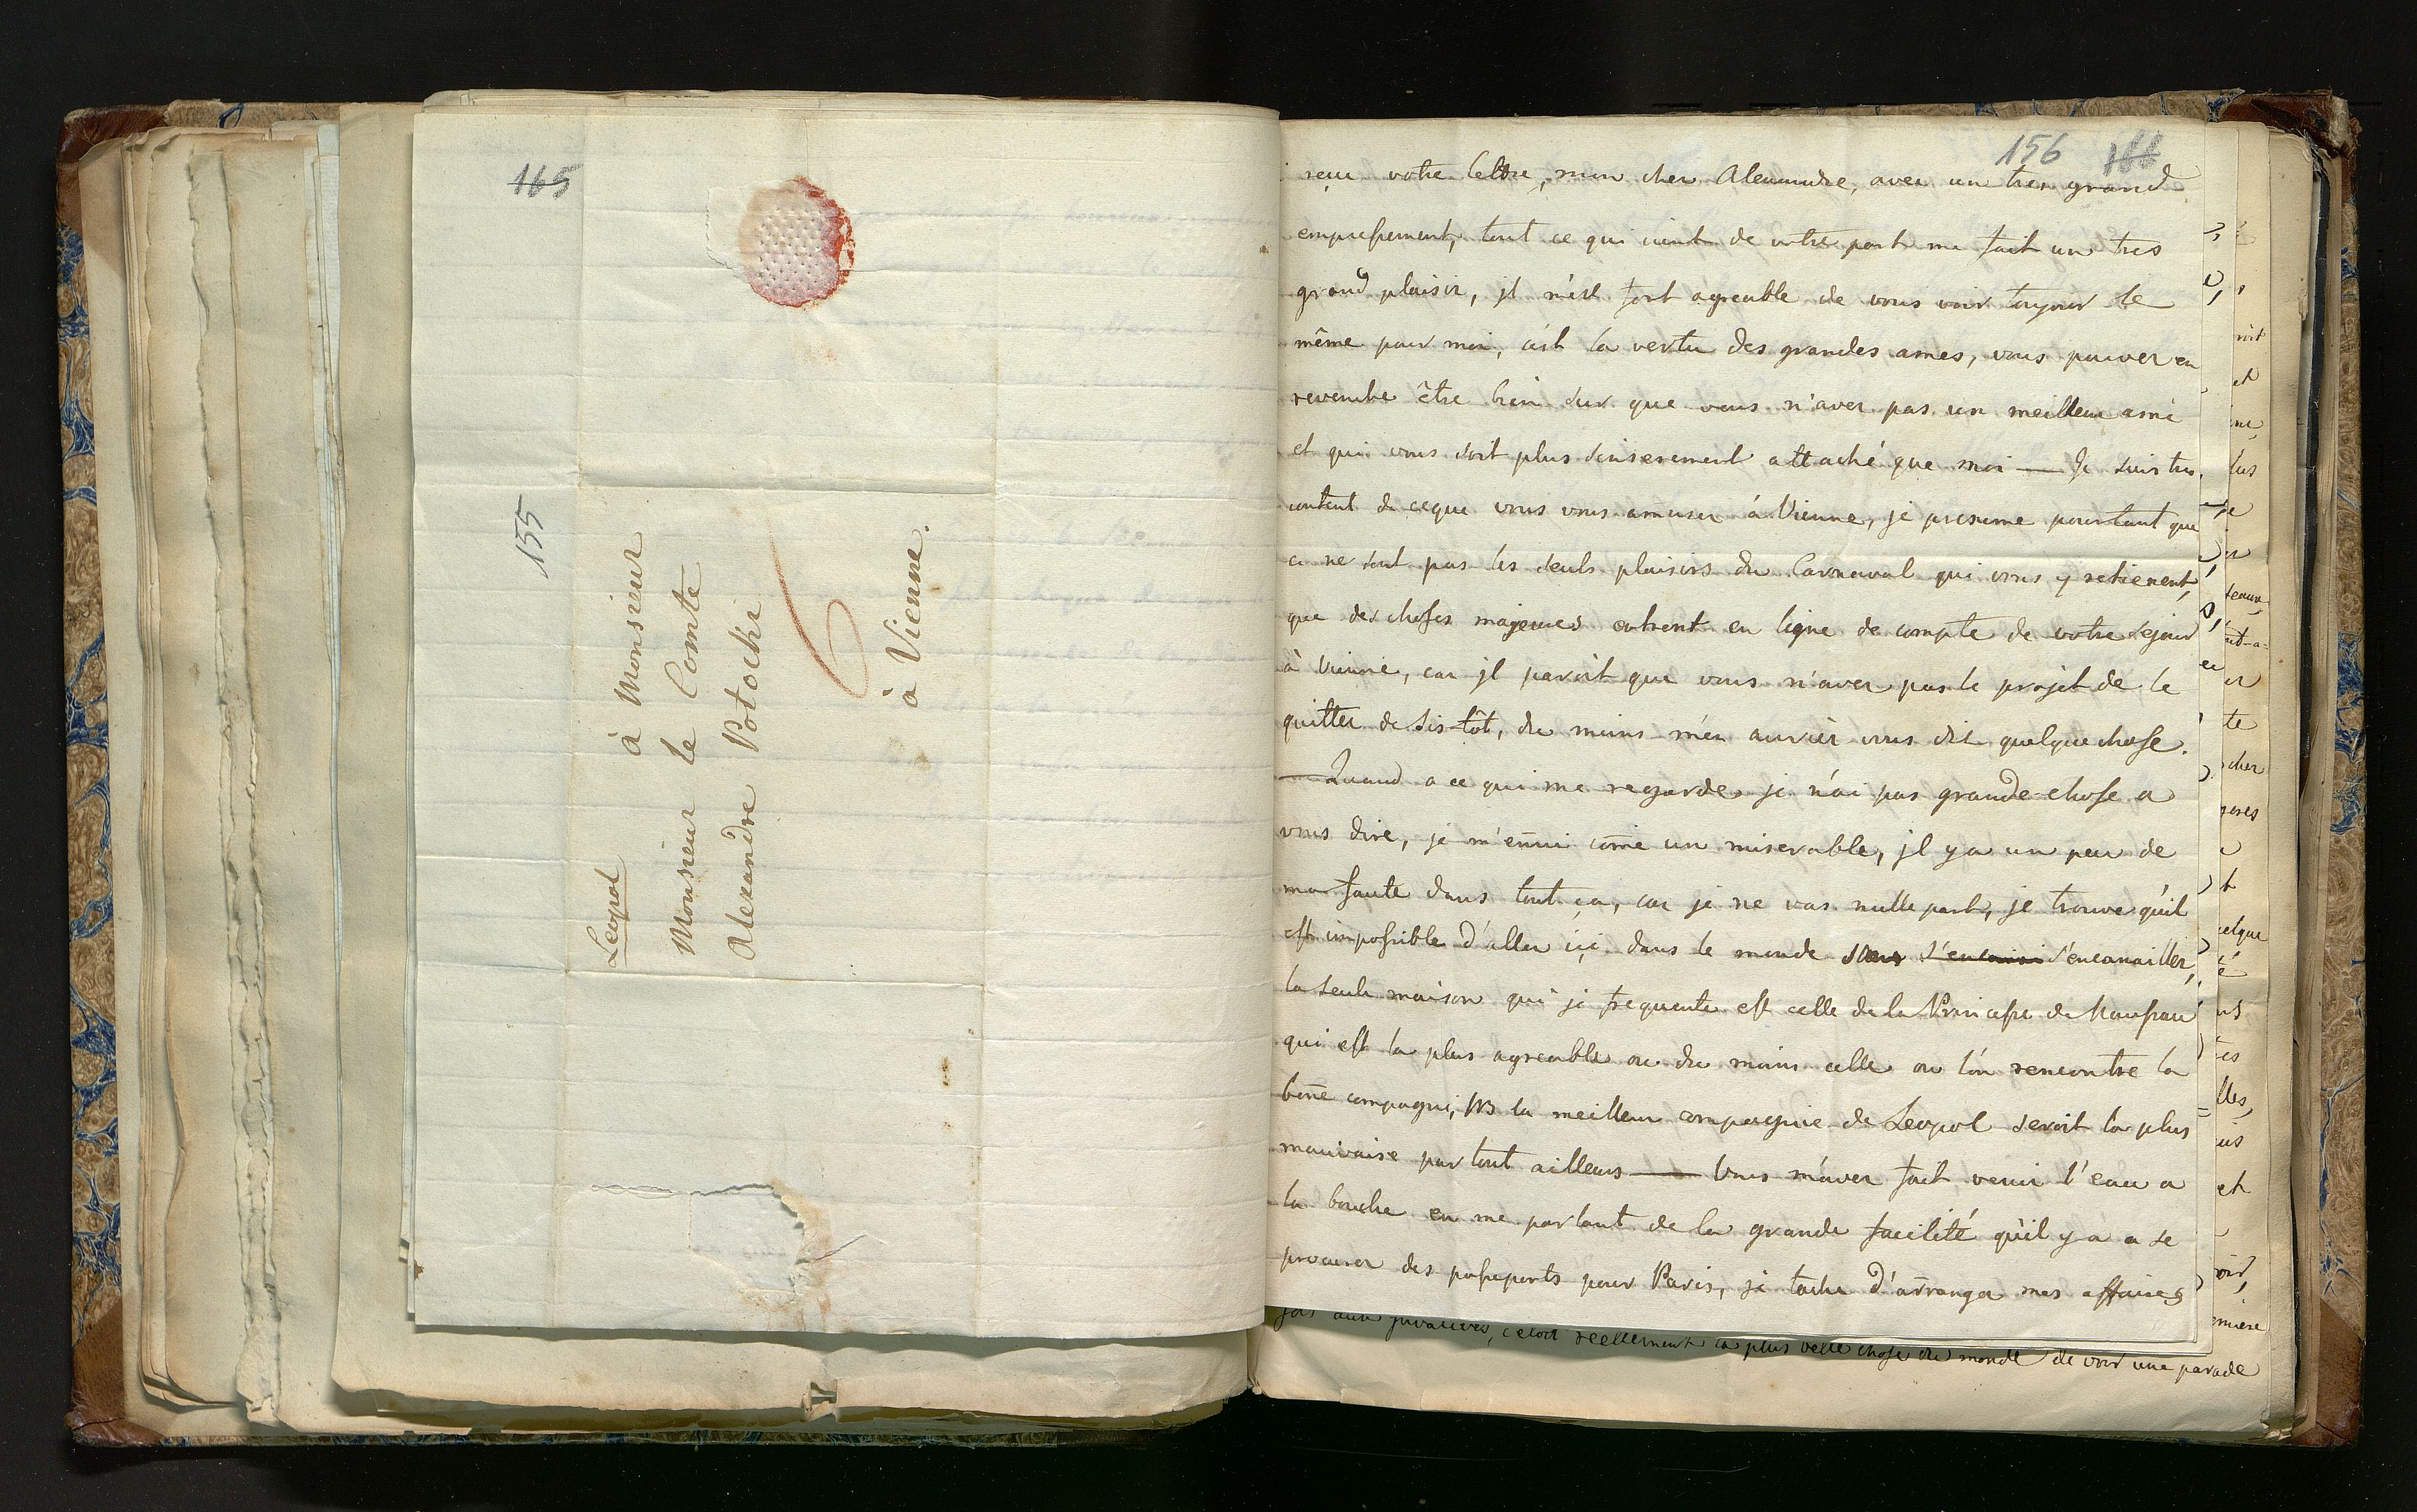 165
155
Leopol
à Monsieur
Monsieur le Comte
Alexandre Potocki
à Vienne.
6
156 166
reçu votre lettre, mon cher Alexandre, avec un tres grand
empressement, tout ce qui vient de votre part me fait un tres
grand plaisir, jl m'est fort agreable de vous voir toujour le
même pour moi, c'est la vertu des grandes ames, vous pouver en
revenche être bien sur que vous n'aver pas un meilleur ami
et qui vous soit plus sinserement attaché que moi — Je suis tres
content de ceque vous vous amuser á Vienne, je presume pourtant que
ce ne sont pas les seuls plaisirs du Carnaval qui vous y retienent,
que des choses majeures entrent en ligne de compte de votre sejour
à Vienne, car jl paroit que vous n'aver pas le projèt de le
quitter de sis-tôt, du moins m'en auriér vous dit quelque chose.
— Quand a ce qui me regarde, je n'ai pas grande chose a
vous dire, je m'en̄ui com̄e un miserable, jl y a un peu de
ma faute dans tout ça, car je ne vas nulle part, je trouve qu'il
est impossible d'aller içi dans le monde sans s'encanailler,
la seule maison que je frequente est celle de la Princesse de
qui est la plus agreable ou du moins celle ou l'on rencontre la
bon̄e compagnie, NB la meilleur compagnie de Leopol seroit la plus
mauvaise partout ailleurs — Vous m'aver fait venir l'eau a
la bouche en me parlant de la grande facilité qu'il y a a se
procurer des passeports pour Paris, je tache d'arranger mes affaires
reellement la plus belle chose du monde de voir une parade